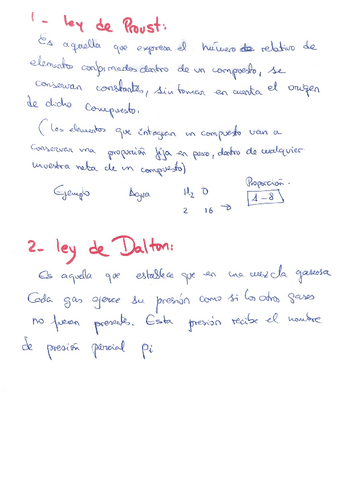 1- ley de Proust:
Es aquella que expresa el número de relativo de
elementos conformados dentro de un compuesto, se
conservan constantes, sin tomar en cuenta el origen
de dicho compuesto.
(Los elementos que integran un compuesto van a
conservar una proporción fija en peso, dentro de cualquier
muestra neta de un compuesto)
Proporción.
Ejemplo Agua H2 O 1-8
2 16 →
2- ley de Dalton:
Es aquella que establece que en una mezcla gaseosa
Cada gas ejerce su presión como si los otros gases
no fueran presentes. Esta presión recibe el nombre
de presión parcial pi